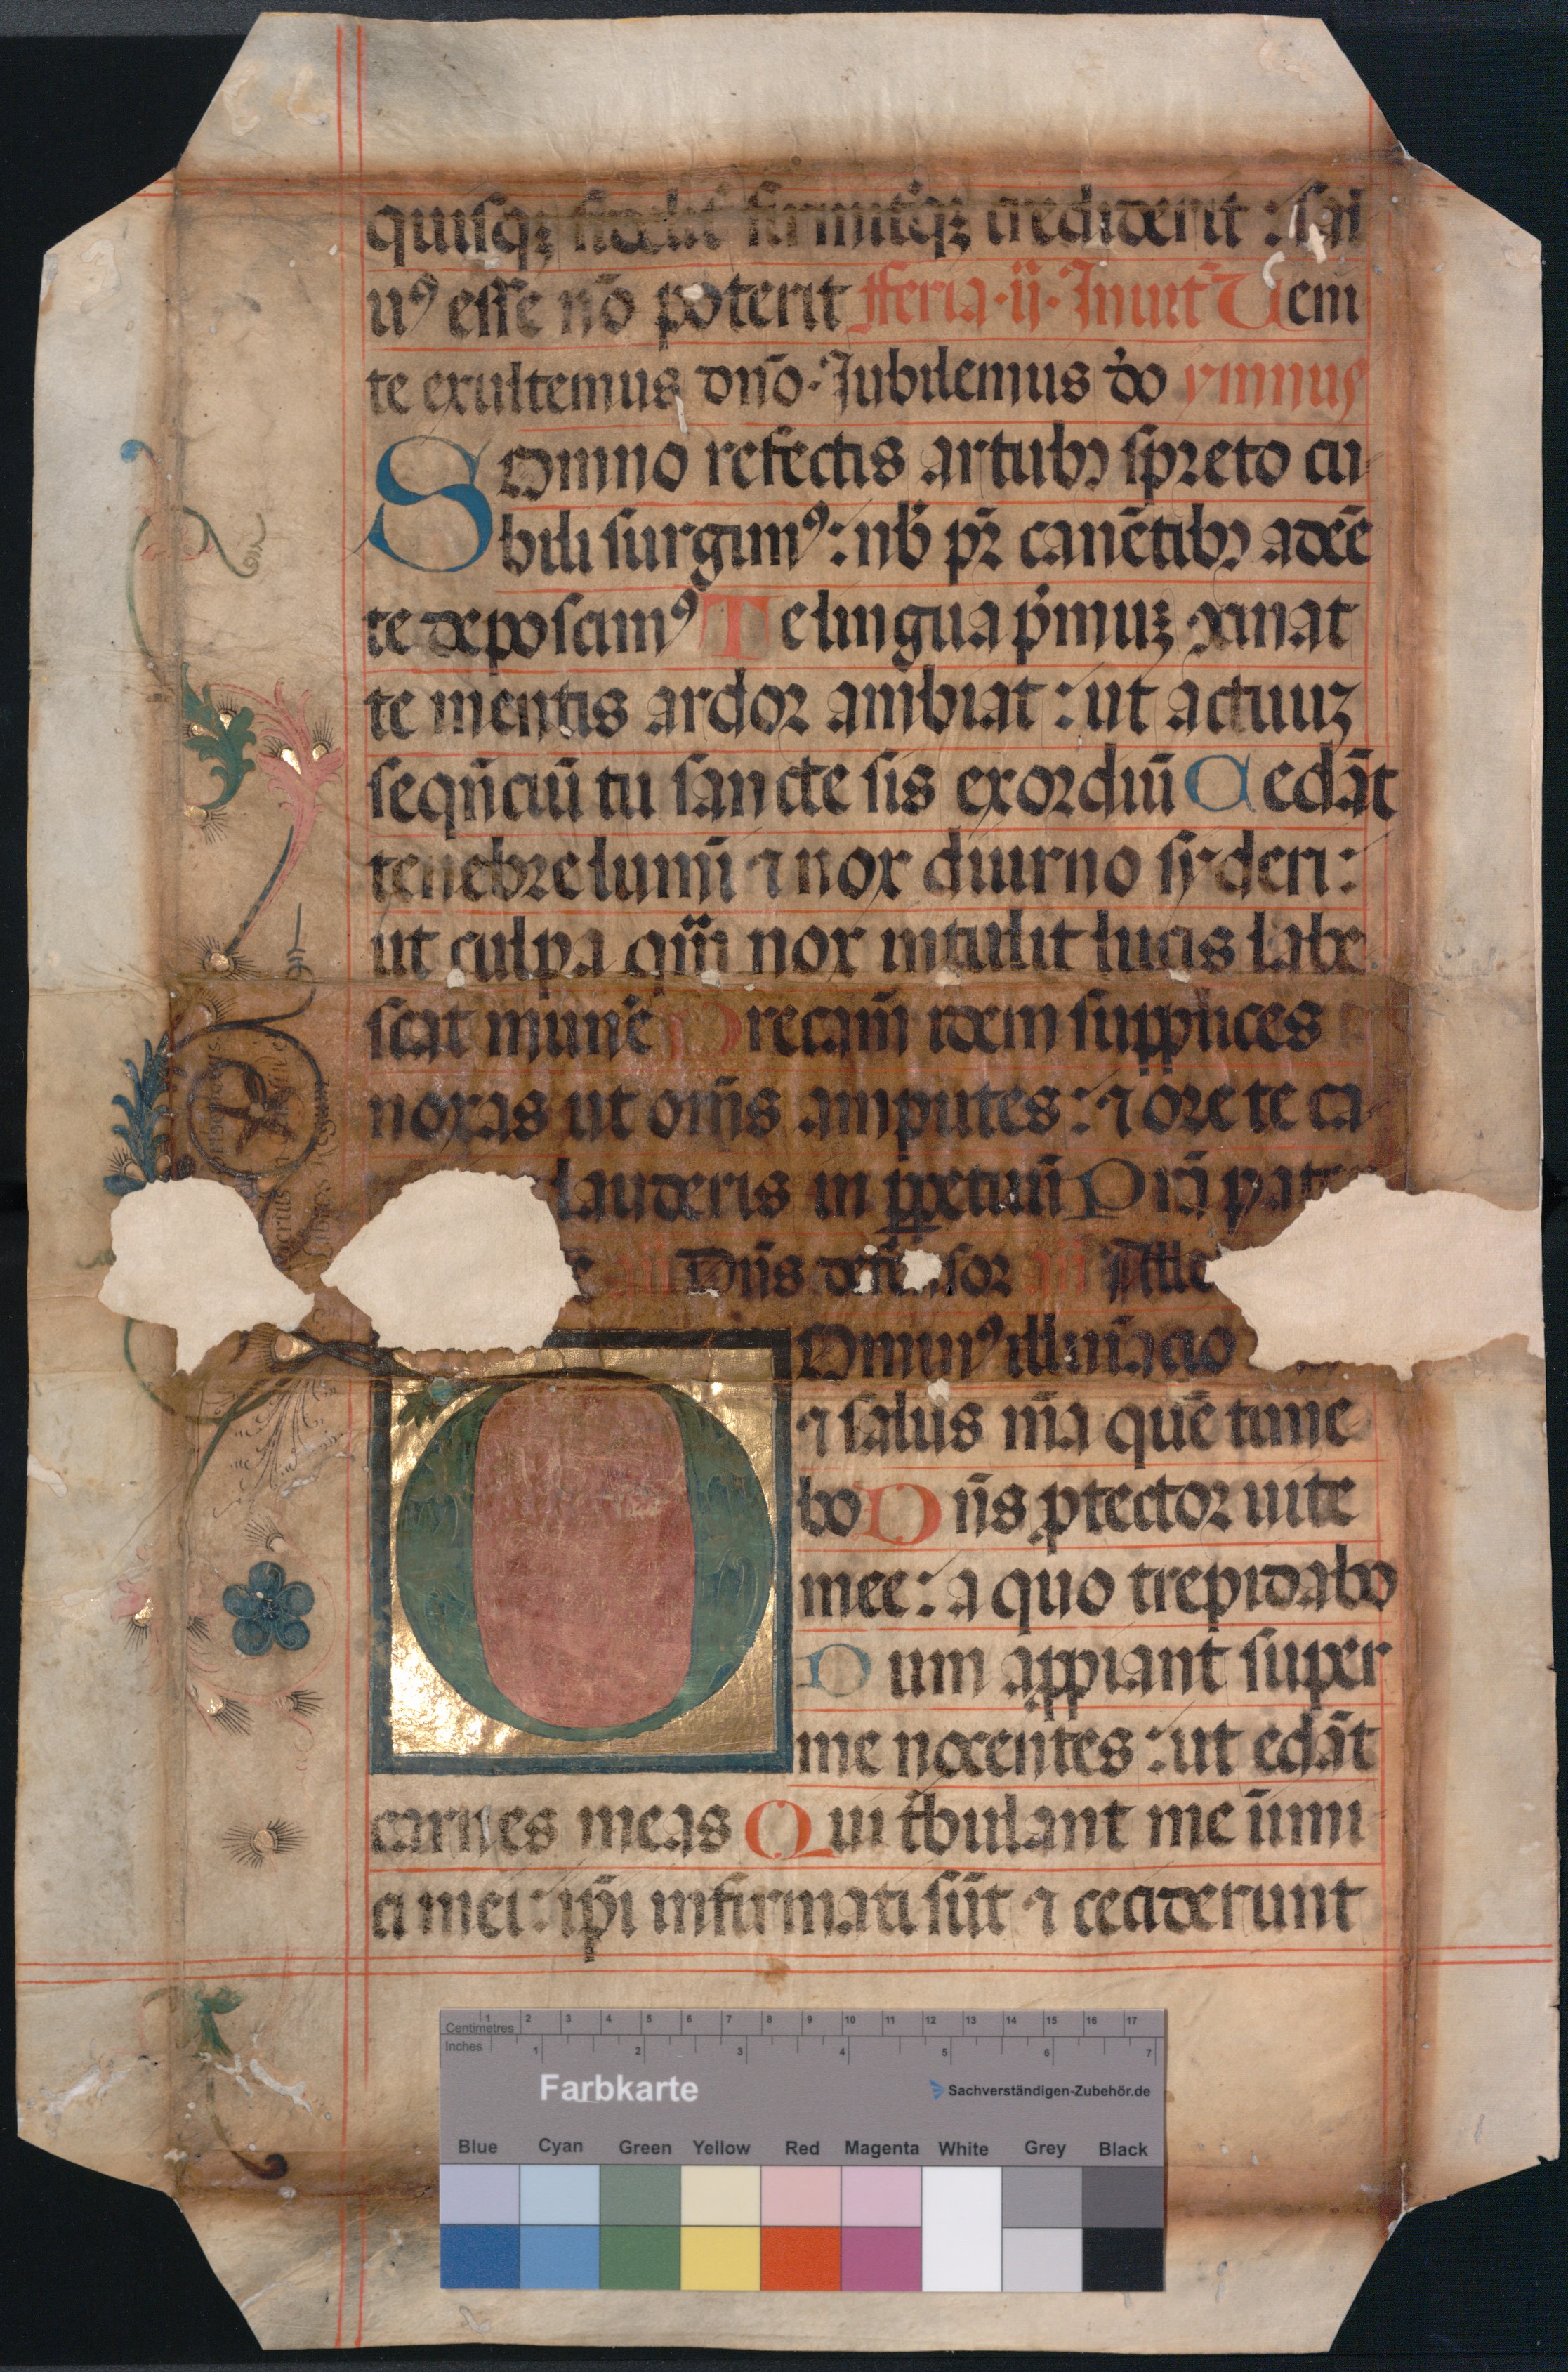 quisq; fidelit̄ firmiterq; crediderit : sal
uꝰ esse nō poterit fferia · ii · Inuit̄ Ueni
te exultemus dn̄o · Iubilemus d̄o ymnus
SOmno refectis artubꝫ spreto cu
bili surgimꝰ : nb̄ pr̄ canētibꝫ adeē
te deposcimꝰ Te lingua p̄muꝫ ꝯcinat
te mentis ardor ambiat : ut actuuꝫ
seqn̄ciū tu sancte sis exordiū Cedāt
tenebre lumī ⁊ nox diurno syderi :
ut culpa qm̄ nox intulit lucis labe
scat mun̄e Precam̄ idem supplices
noxas ut om̄s amputes : ⁊ ore te ca
lauderis in ꝑpetuū Prā pater
an̄ Dn̄s defensor an̄ Alle
DOminꝰ illuīacio
⁊ salus m̄a quē time
bo Dn̄s ꝓtector uite
mee : a quo trepidabo
Dum appiant super
me nocentes : ut edāt
carnes meas Qui t̄bulant me inimi
ci mei : ip̄i infirmati sūt ⁊ ceciderunt
Centimetres 1 2 3 4 5 6 7 8 9 10 11 12 13 14 15 16 17
Inches 1 2 3 4 5 6 7
Farbkarte Sachverständigen-Zubehör.de
Blue Cyan Green Yellow Red Magenta White Grey Black